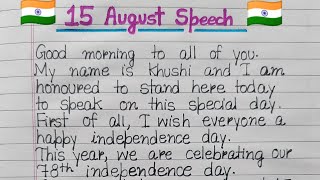 15 August Speech
Good morning to all of you.
My name is khushi and I am
honoured to stand here today
to speak on this special day.
First of all, I wish everyone a
happy independence day.
This year, we are celebrating our
78th independence day.